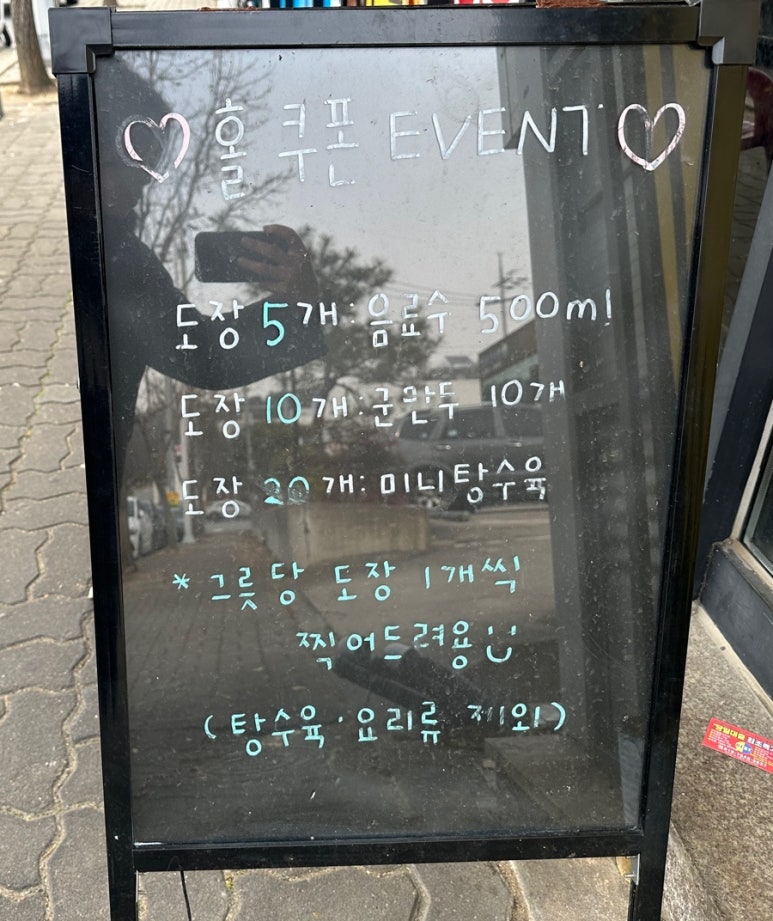 ♡ 홀 쿠폰 EVENT ♡
도장 5개: 음료수 500ml
도장 10개: 군만두 10개
도장 20개: 미니탕수육
* 그릇당 도장 1개씩
찍어드려용
(탕수육·요리류 제외)